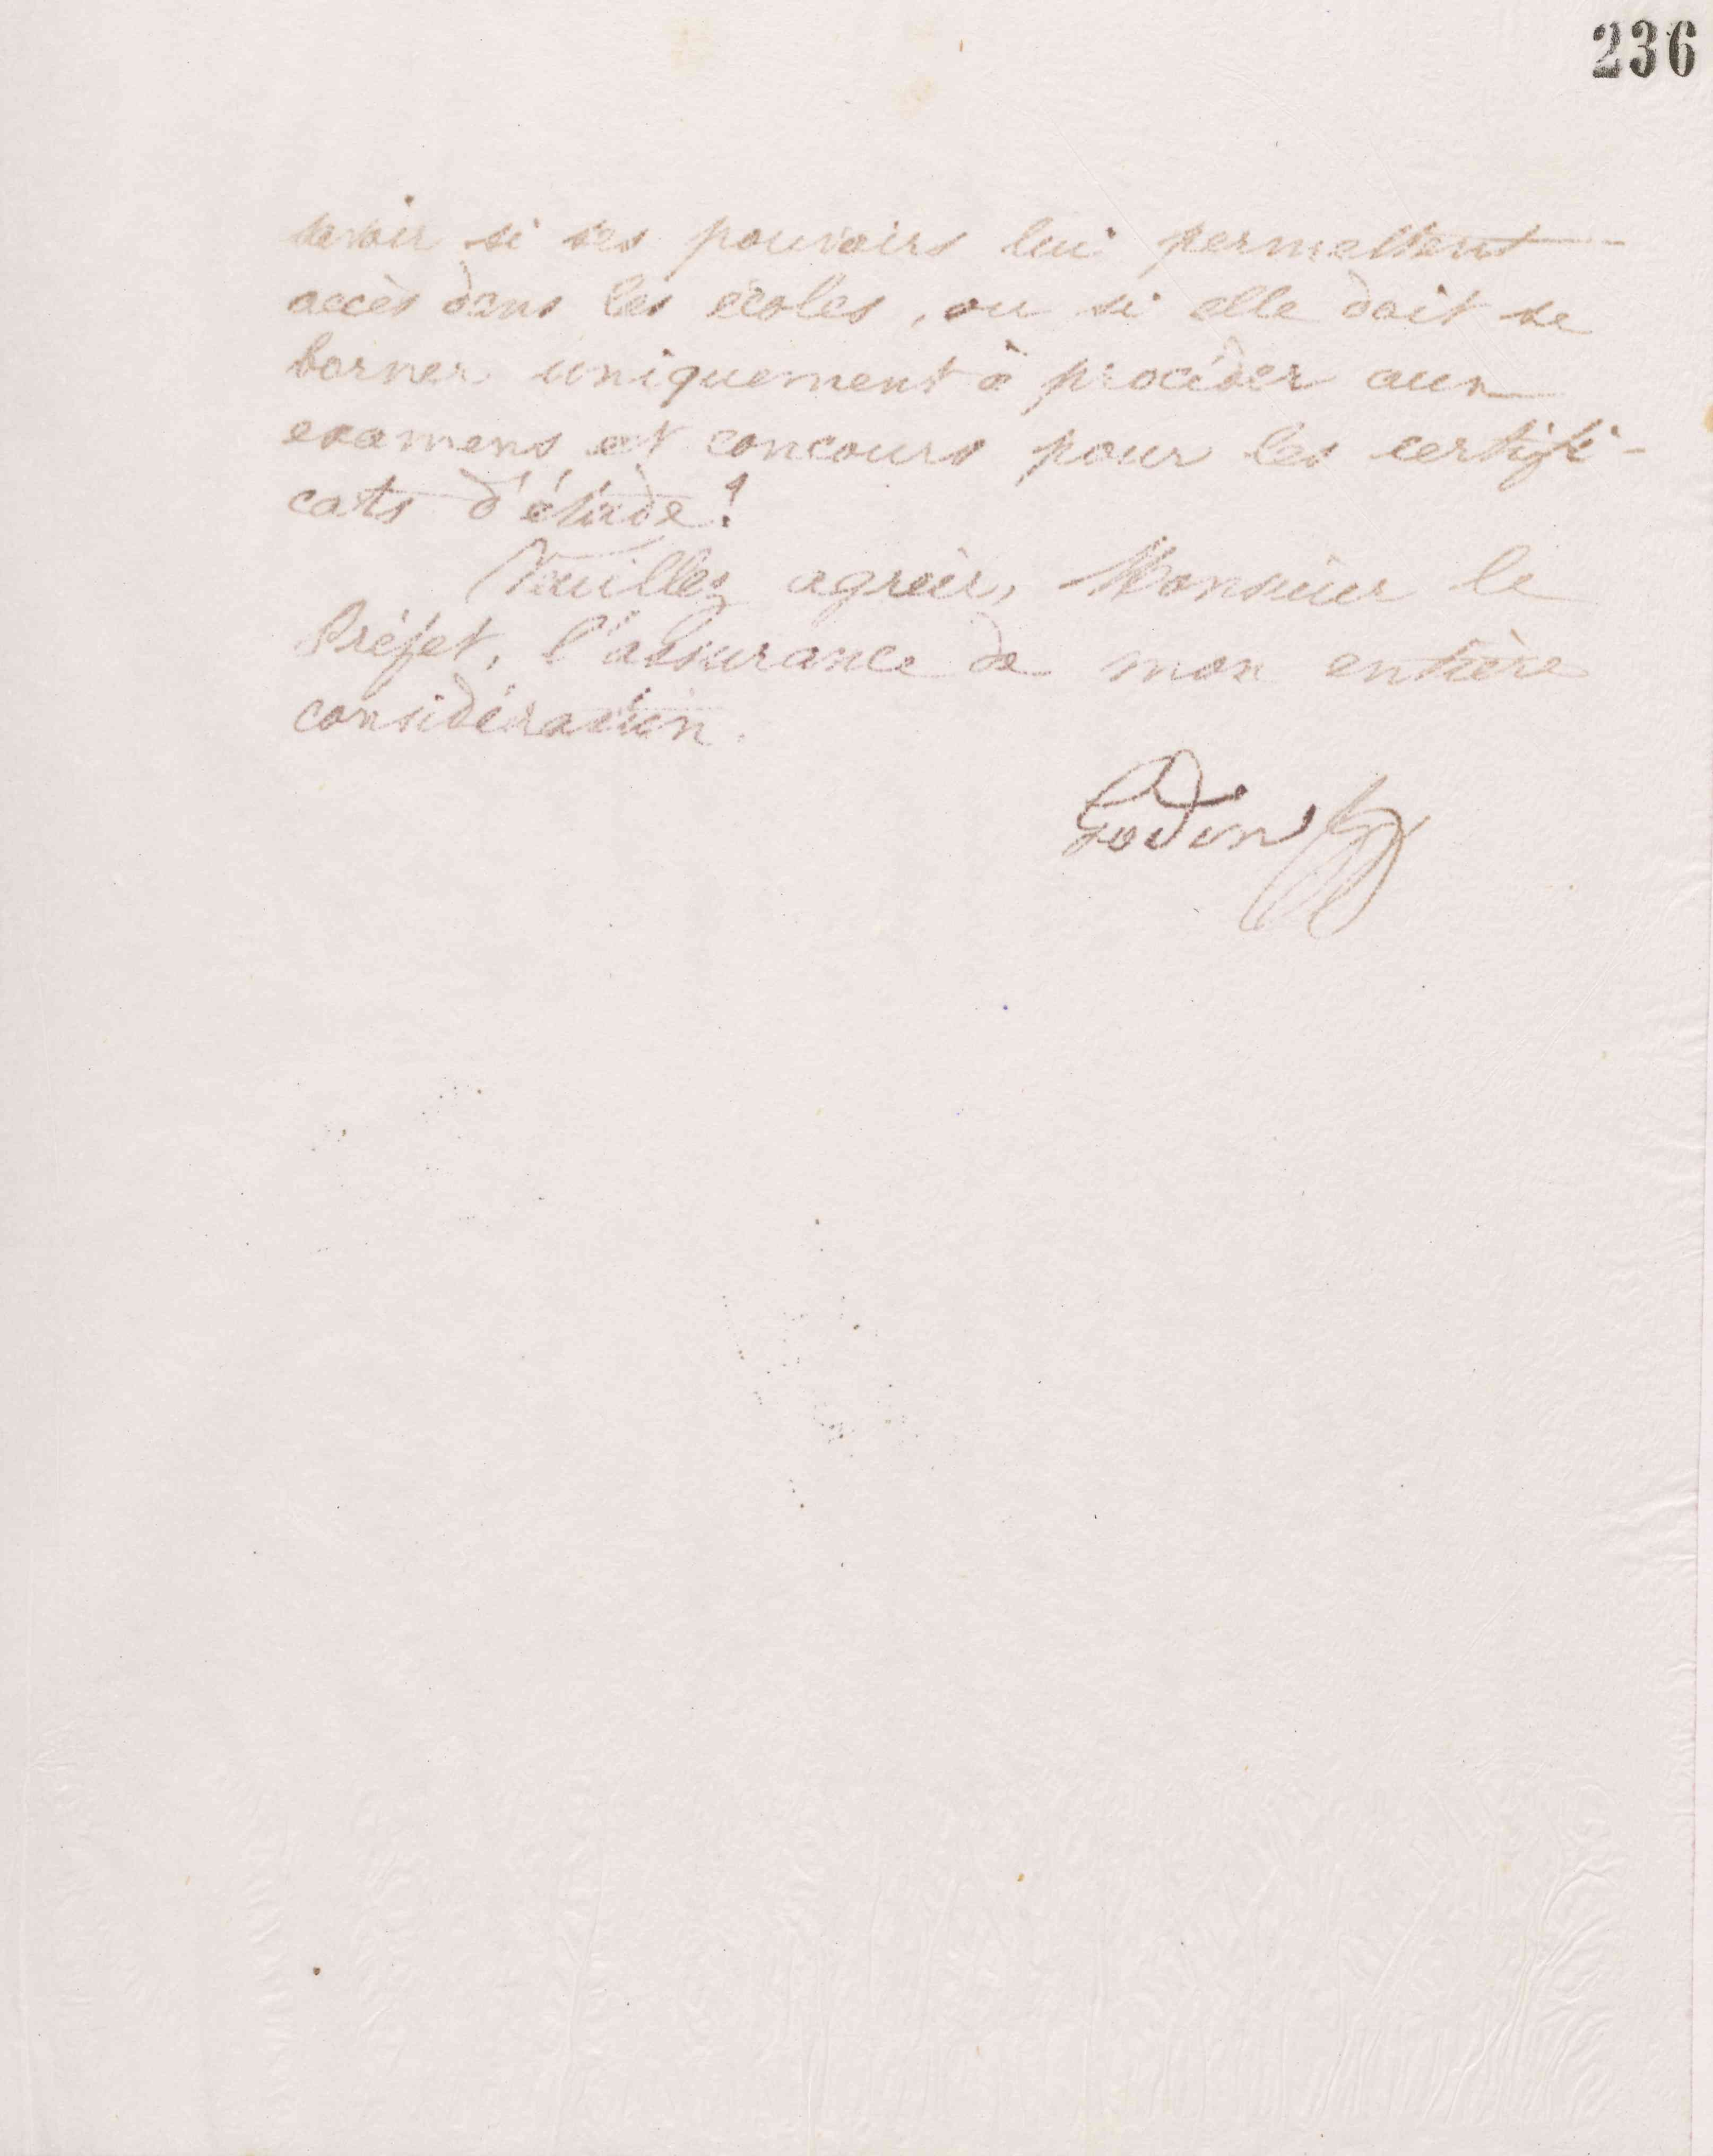 236
savoir si ses pouvoirs lui permettent
accès dans les écoles, ou si elle doit se
borner uniquement à procéder aux
examens et concours pour les certifi-
cats d'étude?
Veuillez agréer, Monsieur le
Préfet, l'assurance de mon entière
considération.
Godin